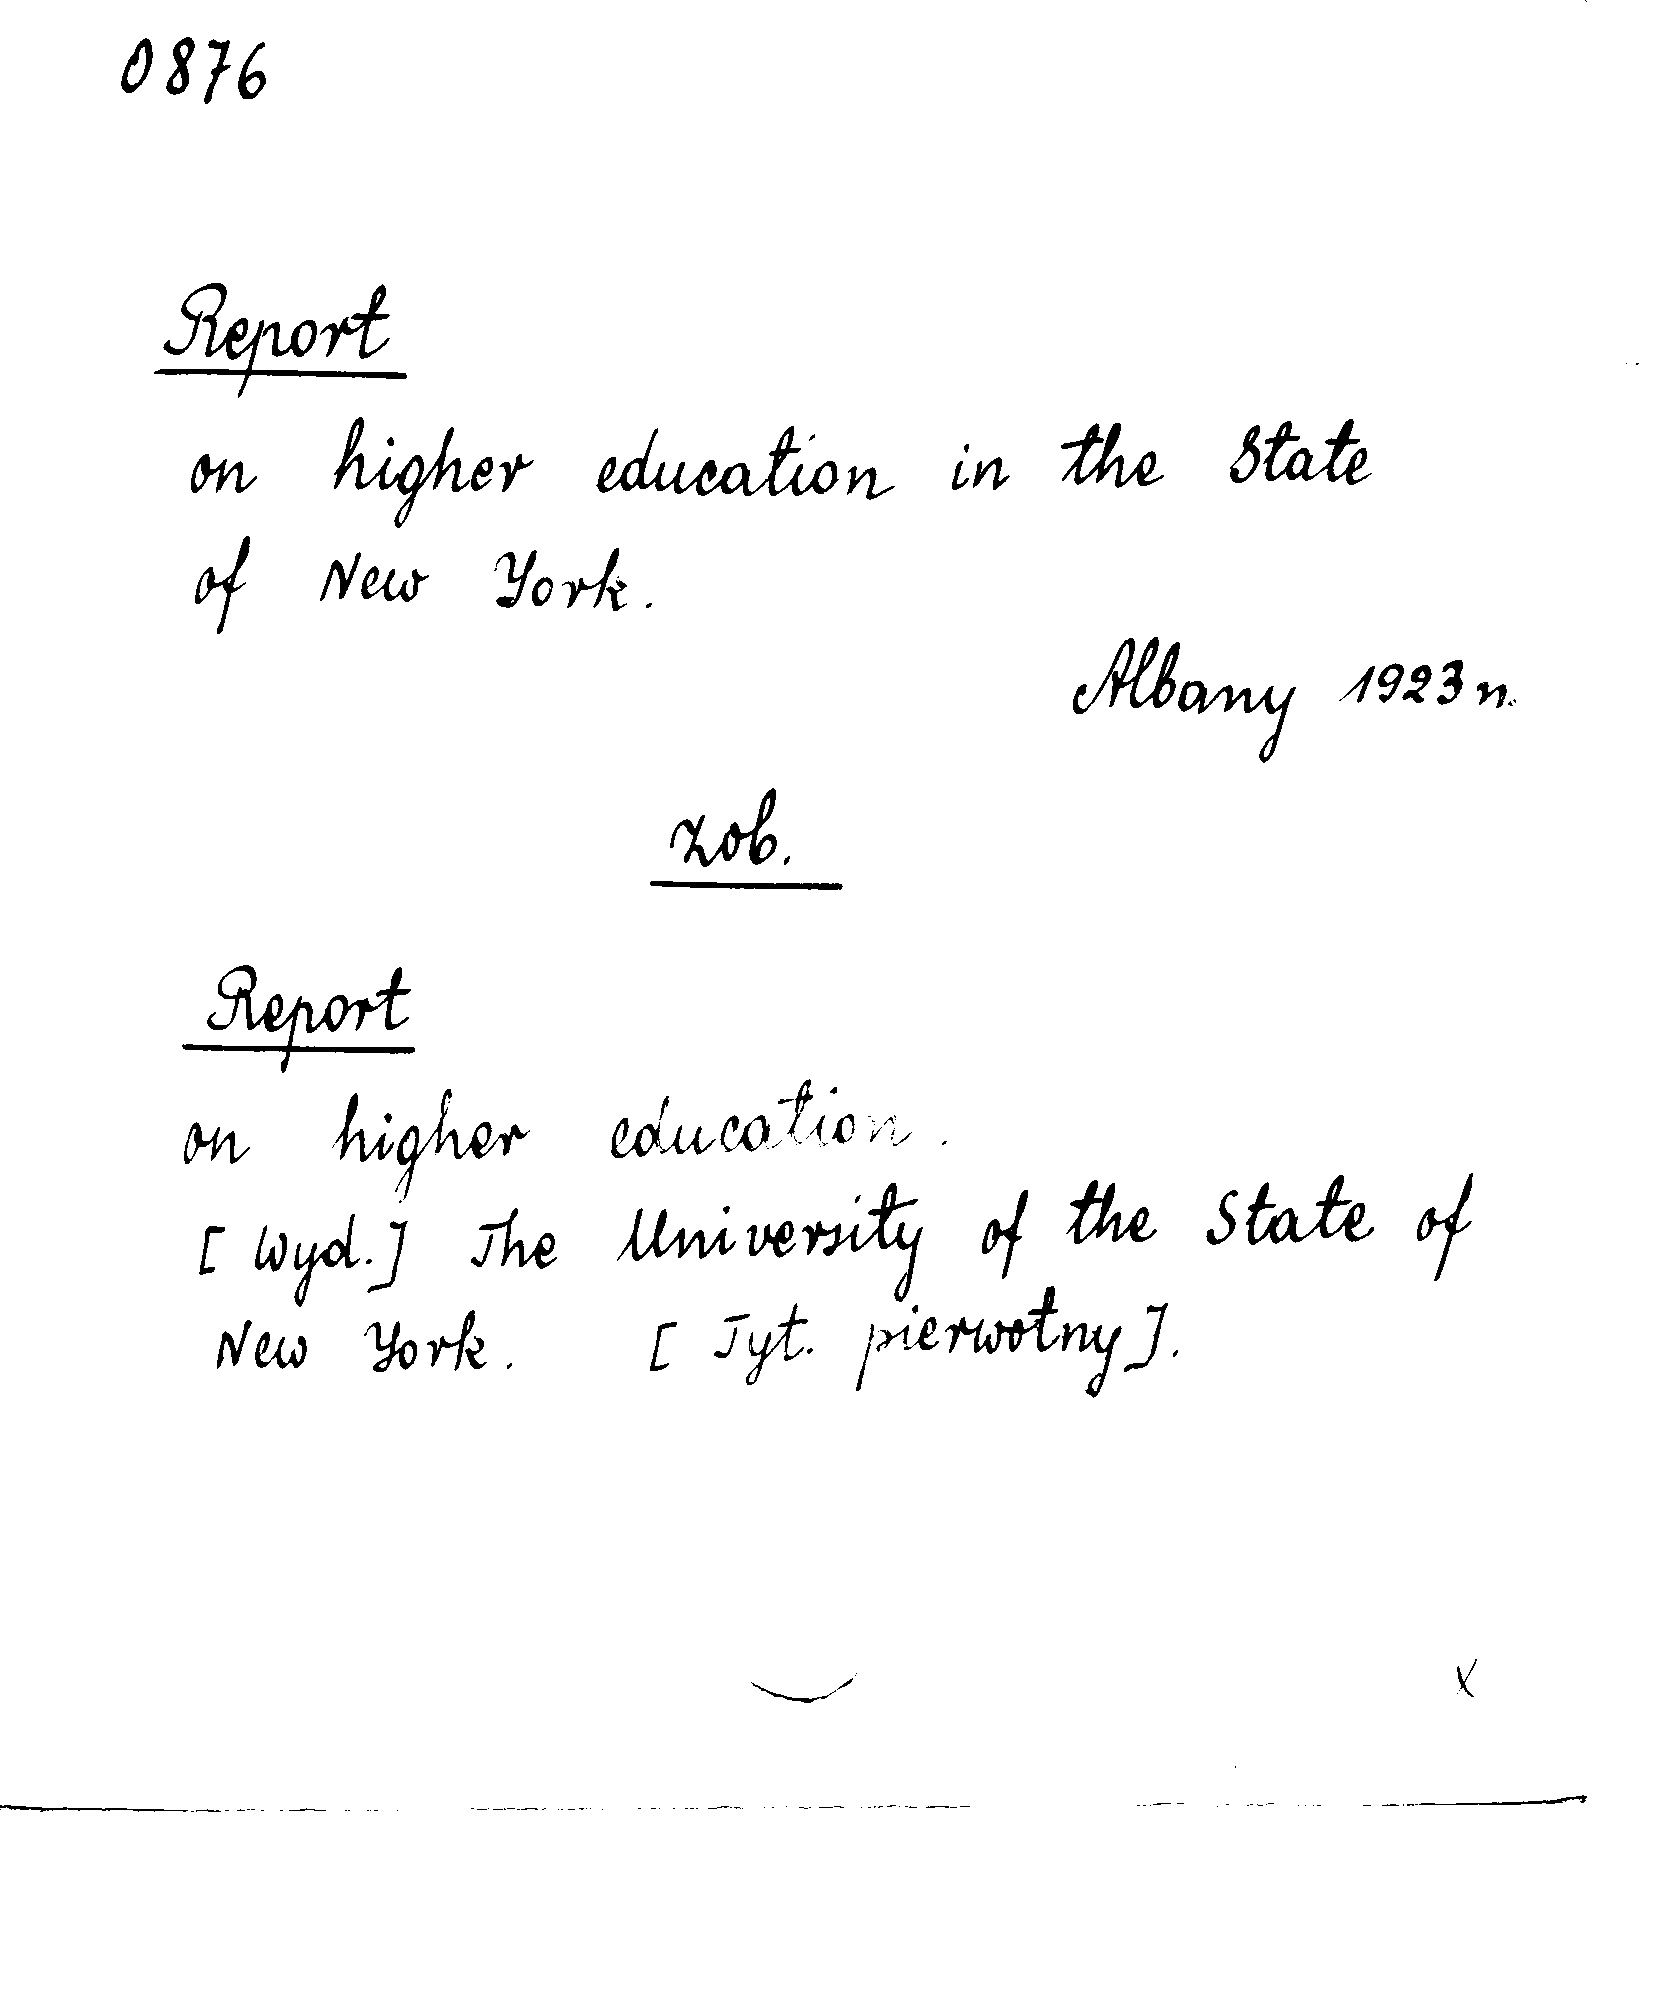 0876
Report
on higher education in the State
of New York.
Albany 1923 n.
zob.
Report
on higher education.
[Wyd.] The University of the State of
New York. [Tyt. pierwotny].
x